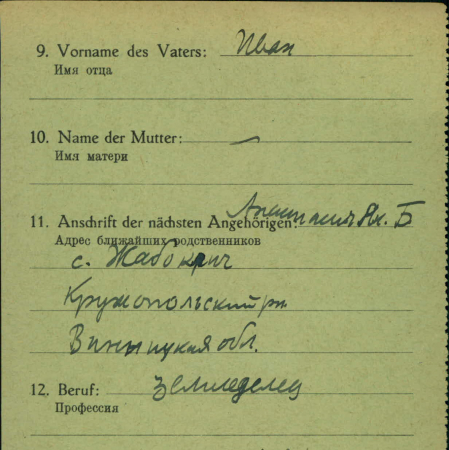 9. Vorname des Vaters: Иван
Имя отца
10. Name der Mutter: —
Имя матери
11. Anschrift der nächsten Angehörigen:
Адрес ближайших родственников
с. Жабокрич
Крыжопольский рн
Виницкая обл.
12. Beruf: Земледелец
Профессия